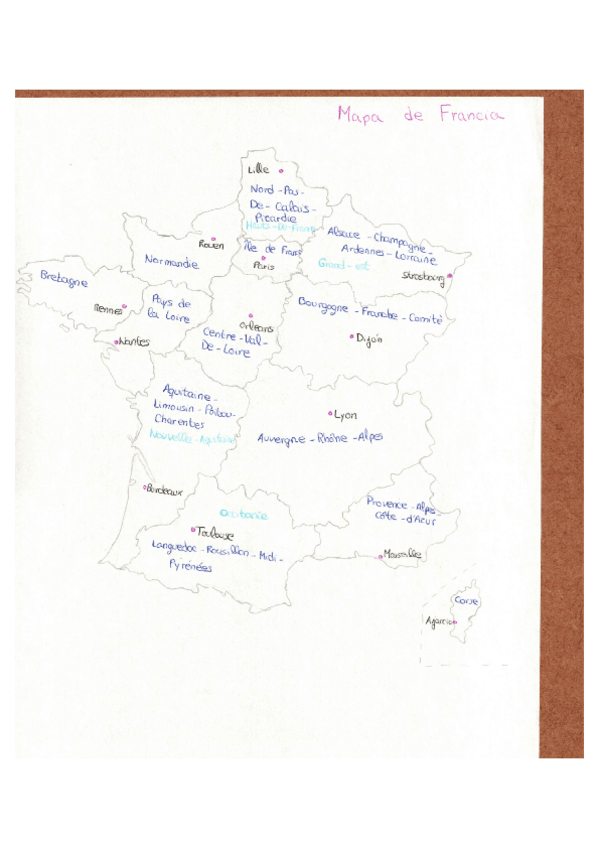 Mapa de Francia
Lille
Nord-Pas-
De-Calais-
Picardie
Hauts-De-France
Alsace-Champagne-
Ardennes-Lorraine
Grand-est
Strasbourg
Rouen
Normandie
Île de France
Paris
Bretagne
Rennes
Pays de
la Loire
Nantes
Orléans
Centre-Val-
De-Loire
Bourgogne-Franche-Comité
Dijon
Aquitaine-
Limousin-Poitou-
Charentes
Nouvelle-Aquitaine
Lyon
Auvergne-Rhône-Alpes
Bordeaux
Occitanie
Toulouse
Languedoc-Rousillon-Midi-
Pyrénées
Provence-Alpes-
Côte-d'Azur
Marseille
Corse
Ajaccio